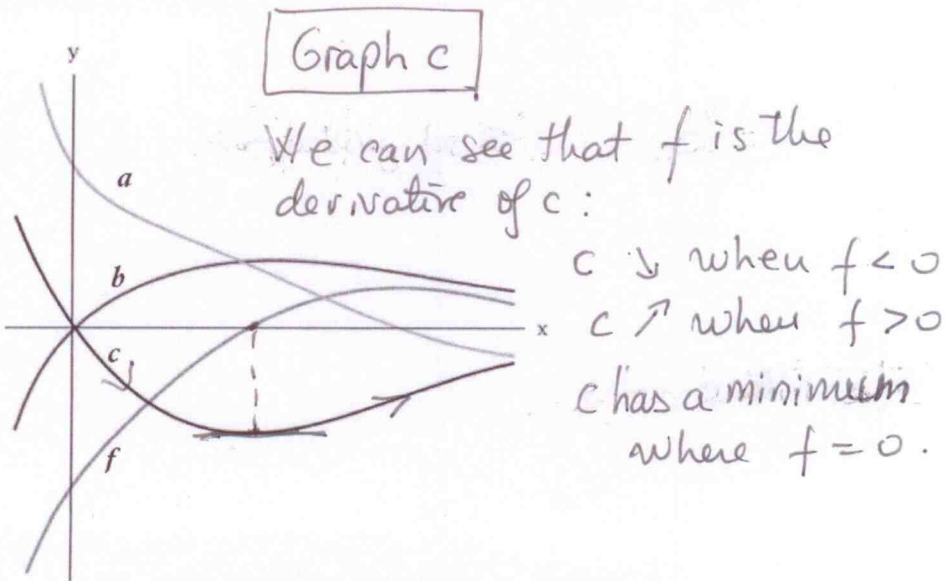 Graph c
y
We can see that f is the
derivative of c :
a
c ↘ when f < 0
b
x
c ↗ when f > 0
c
c has a minimum
where f = 0 .
f